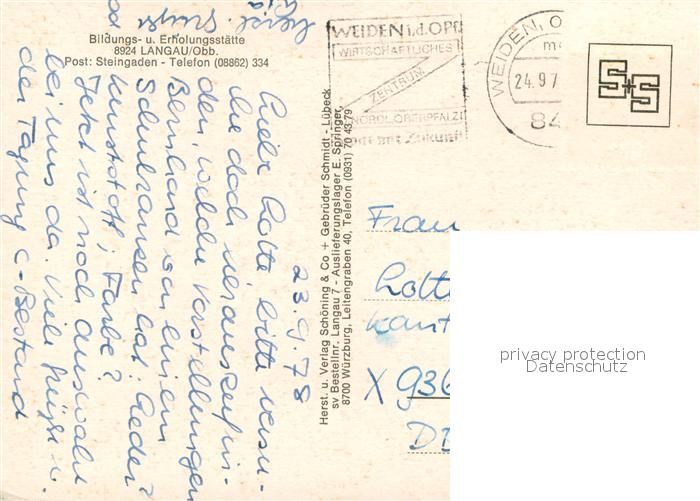 Bildungs- u. Erholungsstätte
8924 LANGAU/Obb.
Post: Steingaden - Telefon (08862) 334
23.9.78
Liebe Lotte bitte versu-
che doch herauszufin-
den, welche Vorstellungen
Bernhard von einem
Schulranzen hat: Leder?
Kunststoff; Farbe?
Jetzt ist noch Auswahl
bei uns da. Viele Grüße v.
der Tagung C-Bestand
Herst. u. Verlag Schöning & Co + Gebrüder Schmidt - Lübeck
sv Bestellnr. Langau 7 - Auslieferungslager E. Springer,
8700 Würzburg, Leitengraben 40, Telefon (0931) 70 43 79
WEIDEN i.d.OPf
WIRTSCHAFTLICHES
ZENTRUM
NORDL.OBERPFALZ
mit Zukunft
WEIDEN, O
24.9.7
84
S+S
Frau
Lott
X 936
DD
privacy protection
Datenschutz